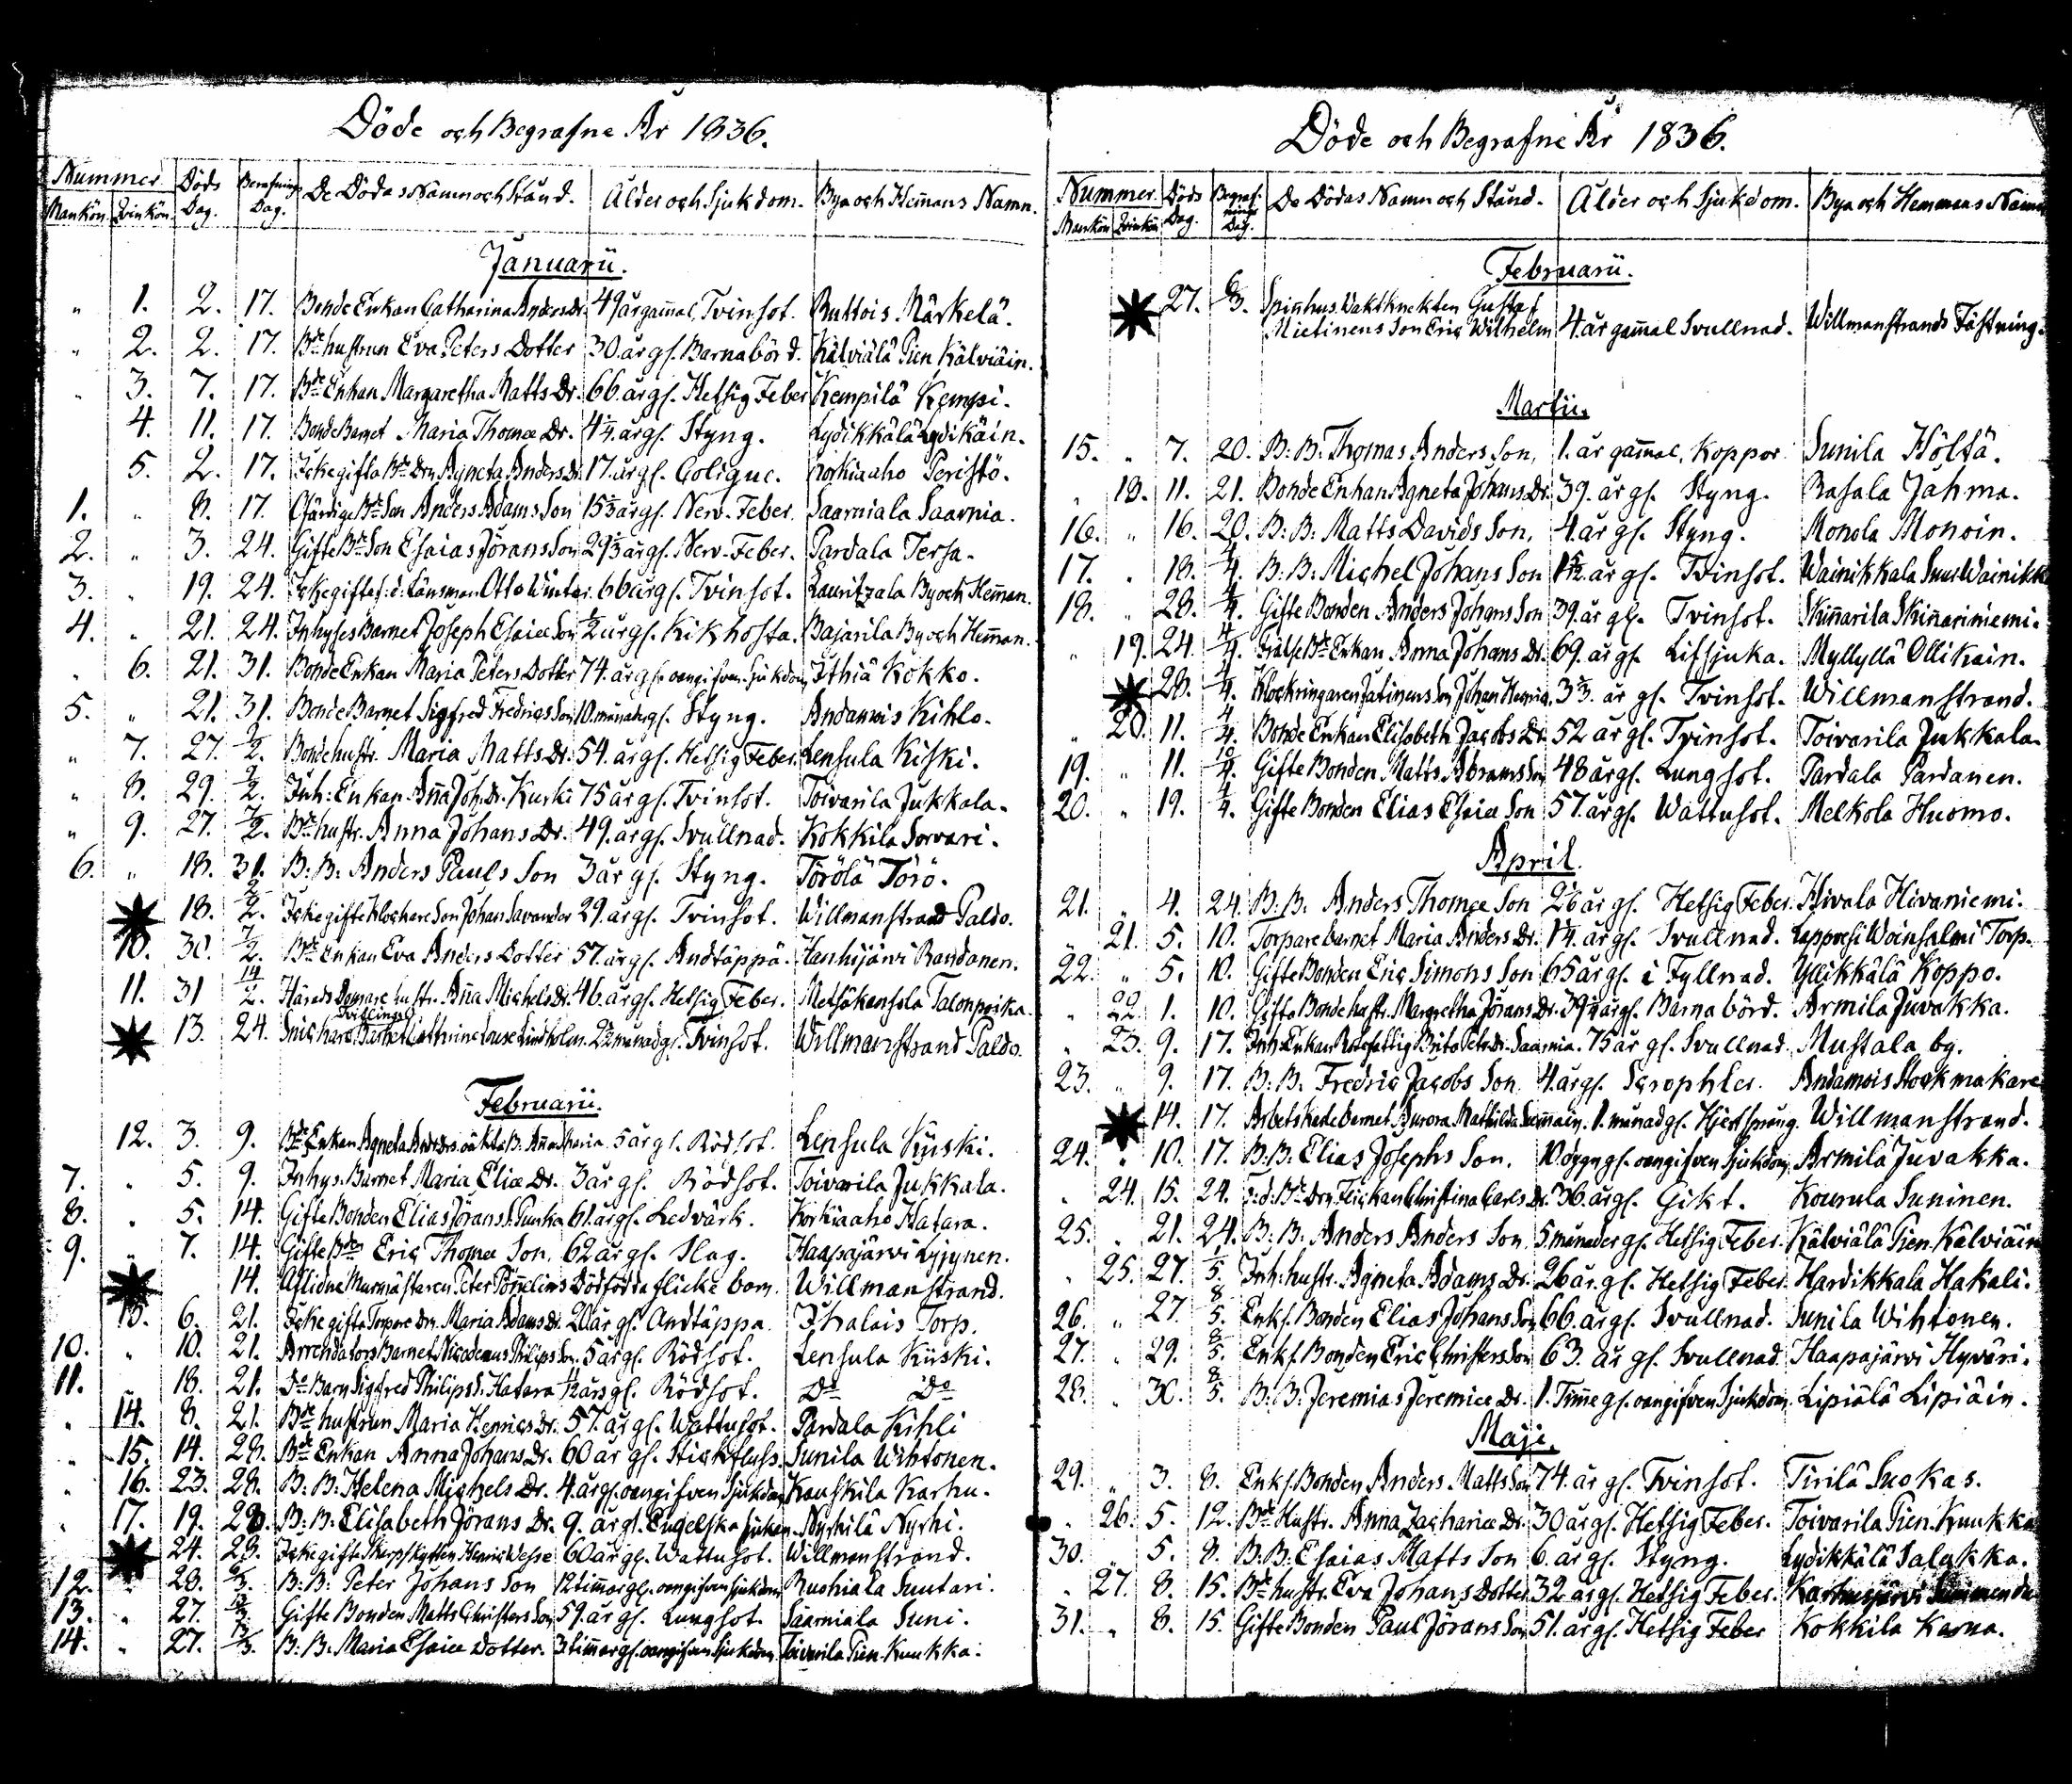 Döde och Begrafne År 1836.
Nummer Döds Begrafnings De Dödas Namn och Stånd. Ålder och Sjukdom. Bya och Hem̄ans Namn.
Mankön. Qvinkön. Dag. Dag.
Januarii.
„ 1. 2. 17. Bonde Enkan Catharina Anders Dr. 49 år gam̄al, Tvinsot. Ruttois Närkelä.
„ 2. 2. 17. Bde hustrun Eva Peters Dotter 30. år gl. Barnabörd. Kälviälä Pien Kälviäin.
„ 3. 7. 17. Bde Enkan Margaretha Matts Dr. 66. år gl. Hetsig Feber Kempilä Kempi.
4. 11. 17. Bonde Barnet Maria Thomæ Dr. 4¼. år gl. Styng. Lydikkälä Lydikäin.
5. 2. 17. Icke gifta Bde Drn Agneta Anders Dr. 17. år gl. Colique. Korkiaaho Peristö.
1. „ 8. 17. Bde Son Anders Adams Son 15⅔ år gl. Nerv. Feber. Saarniala Saarnia.
2. „ 3. 24. Gifte Bde Son Esaias Jörans Son 29⅓ år gl. Nerv. Feber. Pardala Tersa.
3. „ 19. 24. Icke gifte f: d: Länsman Otto Winter. 66 år gl. Tvinsot. Lauritzala By och Hem̄an.
4. „ 21. 24. Inhyses Barnet Joseph Esaiæ Son ½ år gl. Kikhosta. Bajarila By och Hem̄an.
„ 6. 21. 31. Bonde Enkan Maria Peters Dotter 74. år gl. oangifven Sjukdom Ithiä Kokko.
5. „ 21. 31. Bonde Barnet Sigfred Fredrics Son 10. månader gl. Styng. Andamois Kihlo.
„ 7. 27. 7/2. Bonde hustr. Maria Matts Dr. 54. år gl. Hetsig Feber. Lensula Kiski.
„ 8. 29. 7/2. Inh: Enkan An̄a Joh. Dr. Kurki 75 år gl. Tvinsot. Toivarila Jukkala.
„ 9. 27. 7/2. Bde hustr. Anna Johans Dr. 49. år gl. Svullnad. Kokkila Sorvari.
6. „ 18. 31. B: B: Anders Pauls Son 3 år gl. Styng. Törölä Törö.
18. 2/2. Icke gifte Klockare Son Johan Savander 29. år gl. Tvinsot. Willmanstrand Paldo.
10. 30. 7/2. Bde Enkan Eva Anders Dotter 57. år gl. Andtäppa. Hanhijärvi Randanen.
11. 31 14/2. Härads Domare hustr. An̄a Michels Dr. 46. år gl. Hetsig Feber. Metsäkansola Talonpoika.
Tvillinge
13. 24. Snickare Barnet Cathrine Louise Lindholm. 2½ månad gl. Tvinsot. Willmanstrand Paldo.
Februarii.
12. 3. 9. Bde Enkan Agneta And: Drs oäkta B. An̄a Maria. 5 år gl. Rödsot. Lensula Kijski.
7. „ 5. 9. Inhys. Barnet Maria Eliæ Dr. 3 år gl. Rödsot. Toivarila Jukkala.
8. „ 5. 14. Gifte Bonden Elias Jörans S. Punka 61. år gl. Ledvärk. Korkiaaho Hatara.
9. „ 7. 14. Gifte Bden Eric Thomæ Son. 62 år gl. Slag. Haapajärvi Lyjynen.
14. Aflidne Murmästaren Peter Törnelins Dödfödda flicke barn. Willmanstrand.
13. 6. 21. Icke gifta Torpare Drn. Maria Adams Dr. 20 år gl. Andtäppa. Ihalais Torp.
10. „ 10. 21. Arrendators Barnet Nicodemus Philips Son. 5 år gl. Rödsot. Lensula Kijski.
11. 18. 21. Do Barn Sigfred Philips S. Hatara ½ års gl. Rödsot. Do Do
„ 14. 8. 21. Bde hustrun Maria Henrics Dr. 57. år gl. Wattusot. Pardala Kihli
„ 15. 14. 28. Bde Enkan Anna Johans Dr. 60 år gl. Stickfluss. Sunila Wihtonen.
„ 16. 23. 28. B: B: Helena Michels Dr. 4. år gl. oangifven Sjukdom Kauskila Karhu.
„ 17. 19. 28. B: B: Elisabeth Jörans Dr. 9. år gl. Engelska Sjukan. Nyrhilä Nyrhi.
24. 28. Icke gifte Skarpskytten Henric Wesse 60 år gl. Wattusot. Willmanstrand.
12. 28. 6/3. B: B: Peter Johans Son 12 tim̄ar gl. oangifven Sjukdom Ruohiala Suutari.
13. „ 27. 13/3. Gifte Bonden Matts Christers Son 59. år gl. Lungsot. Saarniala Suni.
14. „ 27. 13/3. B: B: Maria Esaiæ Dotter. 3 tim̄ar gl. oangifven Sjukdom. Toivarila Pien Kuukka.
Döde och Begrafne År 1836.
Nummer Döds Begrafnings De Dödas Namn och Stånd. Ålder och Sjukdom. Bya och Hemmans Namn
Mankön Qvinkön Dag. Dag.
Februarii.
27. 6/3. Spin̄hus Vaktknekten Gustaf
Mietinens Son Eric Wilhelm 4. år gam̄al Svullnad. Willmanstrands Fästning.
Martii.
15. „ 7. 20. B: B: Thomas Anders Son, 1. år gam̄al, Koppor Sunila Höltä.
„ 18. 11. 21. Bonde Enkan Agneta Johans Dr. 39. år gl. Styng. Rasala Jähmä.
16. „ 16. 20. B: B: Matts Davids Son, 4. år gl. Styng. Monola Monoin.
17. „ 18. 4/4. B: B: Michel Johans Son 1 5/12. år gl. Tvinsot. Wainikkala Suur Wainikk
18. „ 28. 4/4. Gifte Bonden Anders Johans Son 39. år gl. Tvinsot. Skin̄arila Skin̄ariniemi.
„ 19. 24. 4/4. Frälse Bde Enkan Anna Johans Dr. 69. år gl. Lifsjuka. Myllylä Ollikain.
28. 4/4. Klockringaren Jatinens Son Johan Henric. 3⅔. år gl. Tvinsot. Willmanstrand.
„ 20. 11. 4/4. Bonde Enkan Elisabeth Jacobs Dr. 52 år gl. Tvinsot. Toivarila Jukkala.
19. „ 11. 10/4. Gifte Bonden Matts Abrams Son 48 år gl. Lungsot. Pardala Pardanen.
20. „ 19. 4/4. Gifte Bonden Elias Esaiæ Son 57. år gl. Wattusot. Melkola Huomo.
April.
21. „ 4. 24. B: B: Anders Thomæ Son 26 år gl. Hetsig Feber. Hivala Hivaniemi.
„ 21. 5. 10. Torpare barnet Maria Anders Dr. 1¼. år gl. Svullnad. Lappvesi Woinsalmi Torp.
22. „ 5. 10. Gifte Bonden Eric Simons Son 65 år gl. i Fyllnad. Yllikkälä Koppo.
„ 22. 1. 10. Gifta Bonde hustr. Margretha Jörans Dr. 39½ år gl. Barnabörd. Armila Juvakka.
„ 23. 9. 17. Inh: Enkan Rotefattig Brita Petr. Dr. Saarnia. 75 år gl. Svullnad Mustala by.
23. „ 9. 17. B: B: Fredric Jacobs Son. 4. år gl. Scrophler. Andamois Stockmakare
14. 17. Arbetskarle Barnet Aurora Mathilda. 1. månad gl. Hjertsprång. Willmanstrand.
24. „ 10. 17. B: B: Elias Josephs Son. 10 dygn gl. oangifven Sjukdom, Armila Juvakka.
„ 24. 15. 24. F: d: Bde Drn Flickan Christina Carls Dr. 36 år gl. Gikt. Kourula Suninen.
25. „ 21. 24. B: B: Anders Anders Son 5 månader gl. Hetsig Feber. Kälviälä Pien. Kälviäin
„ 25. 27. 1/5. Inh: hustr. Agneta Adams Dr. 26 år. gl. Hetsig Feber. Hardikkala Hakali.
26. „ 27. 8/5. Enkl. Bonden Elias Johans Son 66. år gl. Svullnad. Sunila Wihtonen.
27. „ 29. 8/5. Enkl. Bonden Eric Christers Son 63. år gl. Svullnad. Haapajärvi Hyväri.
28. „ 30. 8/5. B: B: Jeremias Jeremiæ Dr. 1. Tim̄e gl. oangifven Sjukdom. Lipiälä Lipiäin.
Maji.
29. „ 3. 8. Enkl. Bonden Anders Matts Son 74. år gl. Tvinsot. Tirilä Suokas.
„ 26. 5. 12. Bde Hustr. Anna Zachariæ Dr. 30 år gl. Hetsig Feber. Toivarila Pien. Kuukka
30. „ 5. 8. B: B: Esaias Matts Son 6. år gl. Styng. Lydikkälä Salukka.
„ 27. 8. 15. Bde hustr. Eva Johans Dotter 32 år gl. Hetsig Feber. Karhusjärvi
31. „ 8. 15. Gifte Bonden Paul Jörans Son 51. år gl. Hetsig Feber Kokkila Karna.